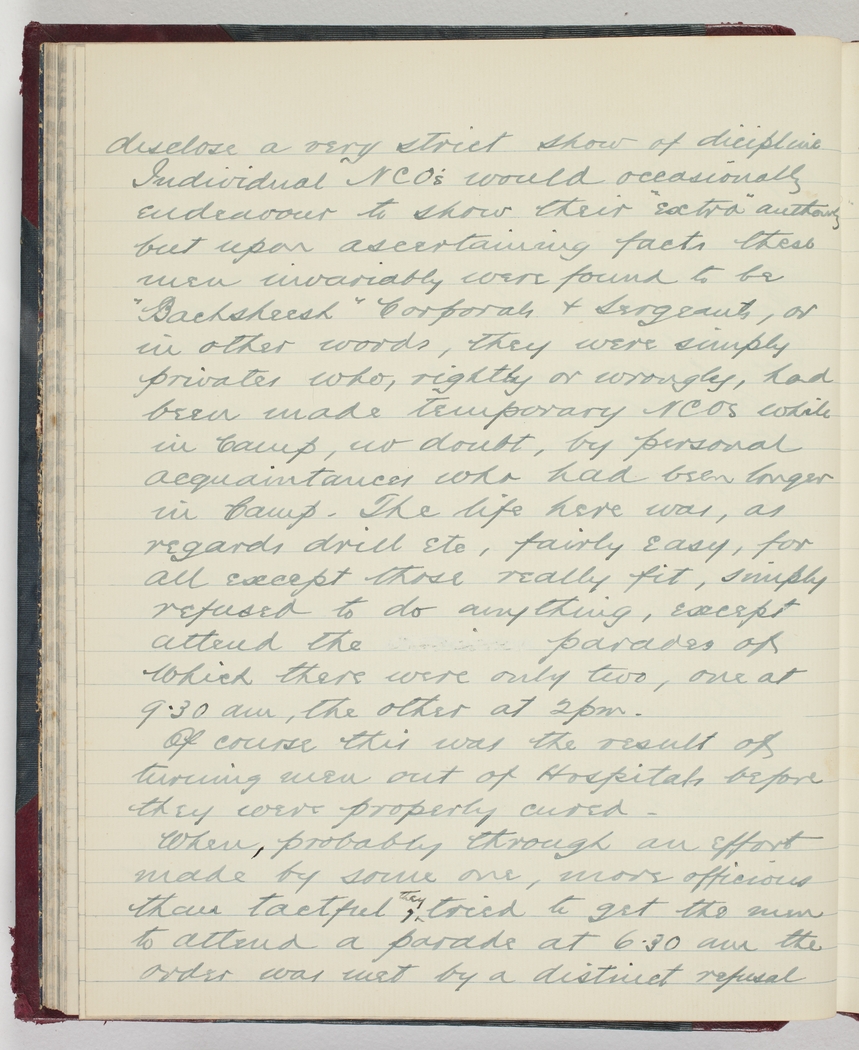 disclose a very strict show of dicipline
Individual NCO's would occasionally
endeavour to show their "extra" authority
but upon ascertaining facts these
men invariably were found to be
"Bachsheesh" Corporals & Sergeants, or
in other words, they were simply
privates who, rightly or wrongly, had
been made temporary NCOs while
in Camp, no doubt, by personal
acquaintances who had been longer
in Camp. The life here was, as
regards drill etc, fairly easy, for
all except those really fit, simply
refused to do anything, except
attend the parades of
which there were only two, one at
9.30 am, the other at 2pm.
Of course this was the result of
turning men out of Hospitals before
they were properly cured -
When, probably through an effort
made by some one, more officious
than tactful, they tried to get the men
to attend a parade at 6.30 am the
order was met by a distinct refusal